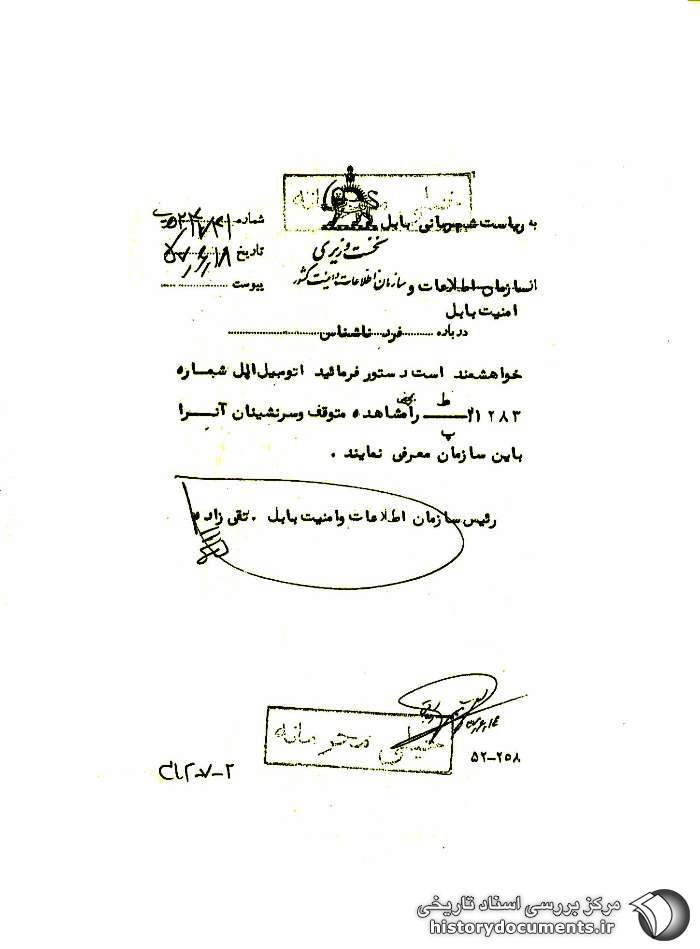 خیلی محرمانه
به ریاست شهربانی بابل
نخست وزیری
شماره
تاریخ ۵۷/۶/۱۸
پیوست
از سازمان اطلاعات و سازمان اطلاعات و امنیت کشور
امنیت بابل
درباره فرد ناشناس
خواهشمند است دستور فرمائید اتومبیل اپل شماره
۲۱۲۸۳ ط را بمحض مشاهده متوقف و سرنشینان آنرا
پ
باین سازمان معرفی نمایند .
رئیس سازمان اطلاعات و امنیت بابل . تقی زاده
خیلی محرمانه
۵۲-۲۵۸
مرکز بررسی اسناد تاریخی
historydocuments.ir